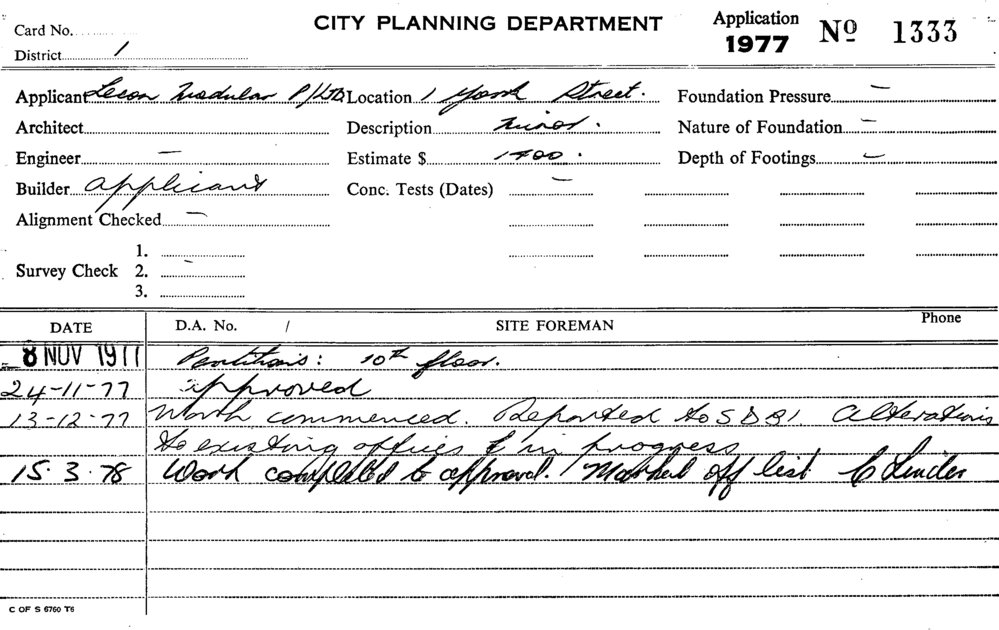 CITY PLANNING DEPARTMENT
Application
1977 Nº 1333
Card No.
District 1
Applicant Lecon Modular P/Ltd Location 1 York Street. Foundation Pressure —
Architect Description Minor. Nature of Foundation —
Engineer — Estimate $ 1400. Depth of Footings —
Builder applicant Conc. Tests (Dates) —
Alignment Checked —
Survey Check 1.
2. —
3.
DATE D.A. No. / SITE FOREMAN Phone
8 NOV 1977 Partitions: 10th floor.
24-11-77 approved
13-12-77 Work commenced. Reported to S D B I. Alterations
to existing offices in progress
15.3.78 Work completed to approval. Marked off list C Linder
C OF S 6760 T6